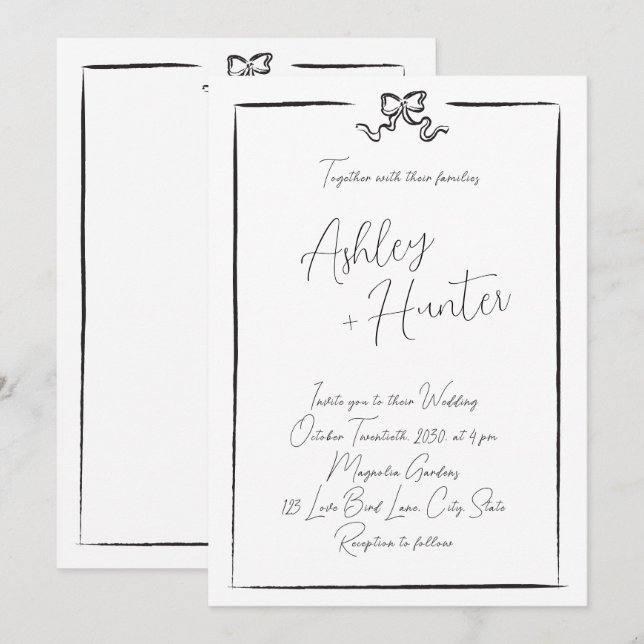 Together with their families
Ashley
+ Hunter
Invite you to their Wedding
October Twentieth, 2030, at 4 pm
Magnolia Gardens
123 Love Bird Lane, City, State
Reception to follow